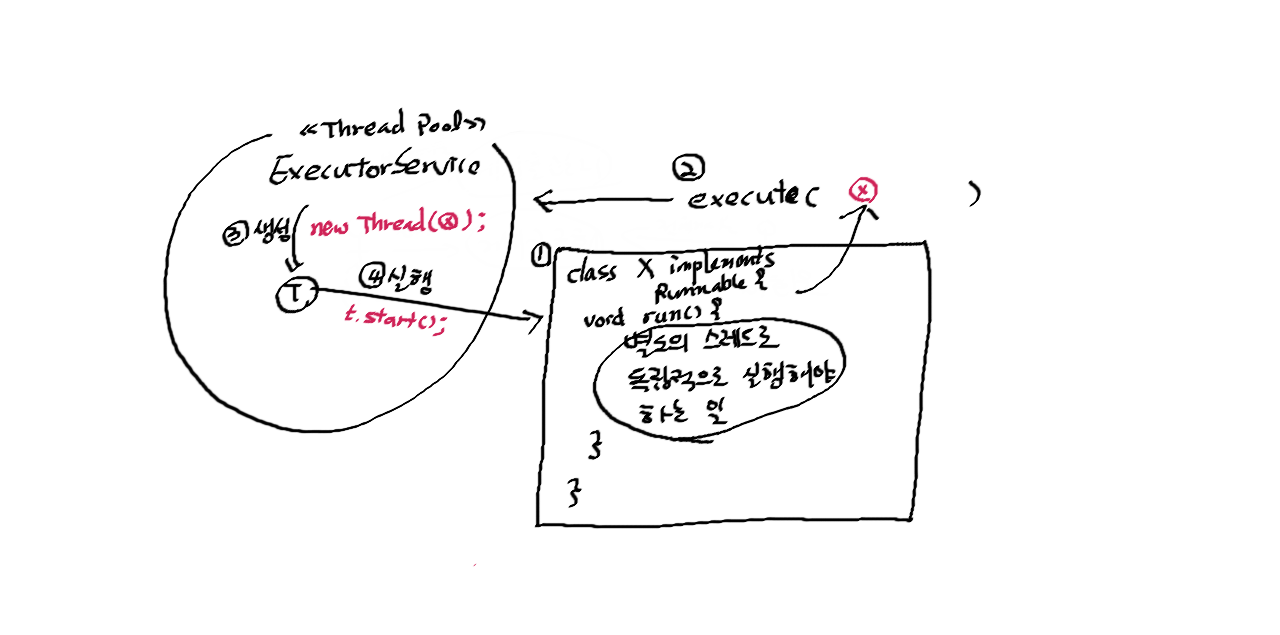 «Thread Pool»
ExecutorService
② execute( ⓧ )
③ 생성 new Thread(ⓧ);
T
④ 실행
t.start();
① class X implements
Runnable {
void run() {
별도의 스레드로
독립적으로 실행해야
하는 일
}
}